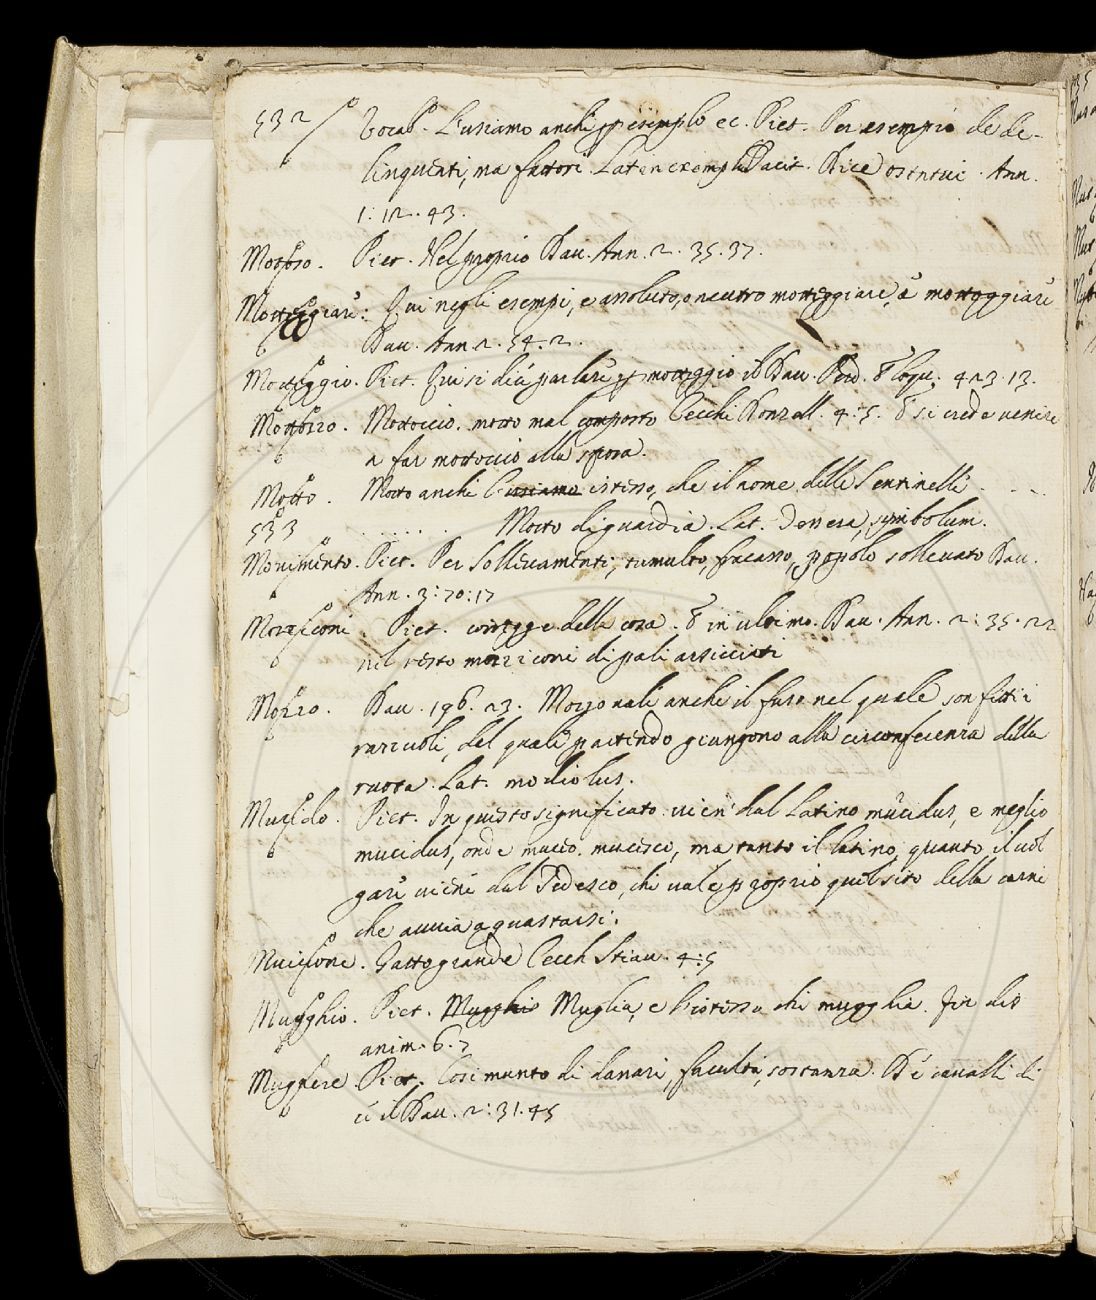 532 Vocab. L'usiamo anche p esempio ec. Piet. Per esempio de de-
linquenti, ma fattori. Lat. in exemplū Tacit. Dice ostentui. Ann.
1:12.43.
Mortoro. Piet. Nel proprio Dav. Ann. 2. 35.37.
Motteggiare. Qui negli esempi, e assoluto, o neutro motteggiare, è motteggiare
Dav. Ann. 2. 54. 2.
Motteggio. Piet. Qui si dià parlare p motteggio il Dav. Perd. Eloqu. 423.13.
Mottozzo. Mottoccio. motto mal composto Cecchi Donzell. 4:5. E si crede venire
a far mottoccio alla sposa.
Motto. Motto anche l'usiamo istesso, che il nome delle Sentinelle
533 ...... Motto di guardia. Lat. Tessera, symbolum.
Movimento. Piet. Per Sollevamenti, tumulto, fracasso, popolo sollevato Dav.
Ann. 3:70:17
Mozziconi. Piet. corregge della cosa. E in ultimo. Dav. Ann. 2:35.22
nel resto mozziconi di pali arsicciati
Mozzo. Dav. 196. 23. Mozzo vale anche il fuso nel quale son fitti i
razzuoli, del quale partendo giungono alla circonferenza della
ruota. Lat. modiolus.
Mucido. Piet. In questo significato vien dal Latino mucidus, e meglio
mucidus, onde muceo. mucisco, ma tanto il latino, quanto il vol
gare viene dal Tedesco, che vale proprio quel sito della carne
che avvia a guastarsi.
Mucione. Gatto grande Cecch Stiav. 4:5
Mugghio. Piet. Mugghio Muglia, e l'istesso che mugghia. Fir. dis
anim. 6.7
Muggere. Piet. Cosi munto di danari, facultà, sostanza. De' cavalli di
cè il Dav. 2:31.45